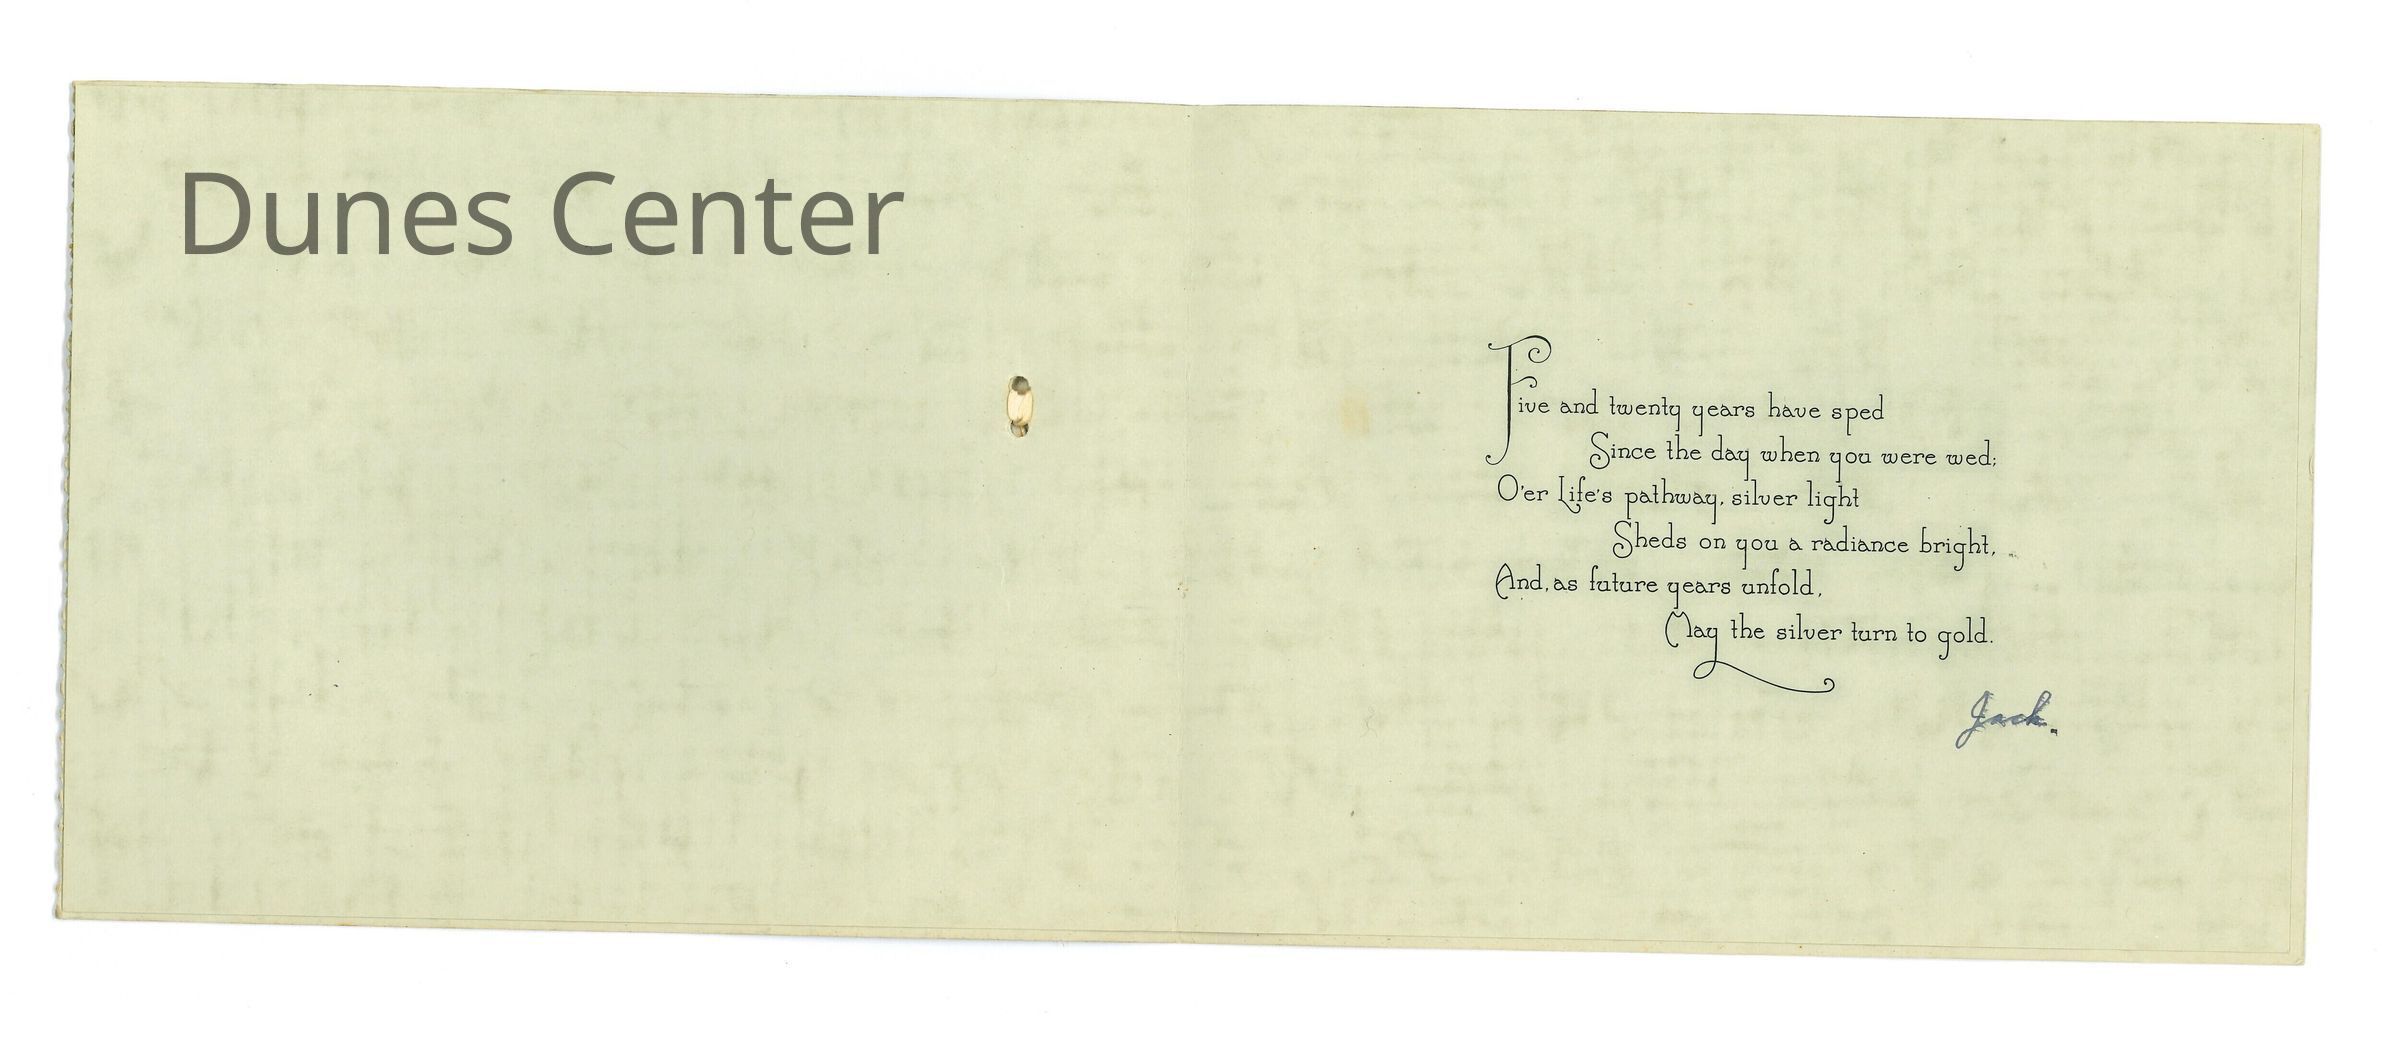 Dunes Center
Five and twenty years have sped
Since the day when you were wed;
O'er Life's pathway, silver light
Sheds on you a radiance bright,
And, as future years unfold,
May the silver turn to gold.
Jack.